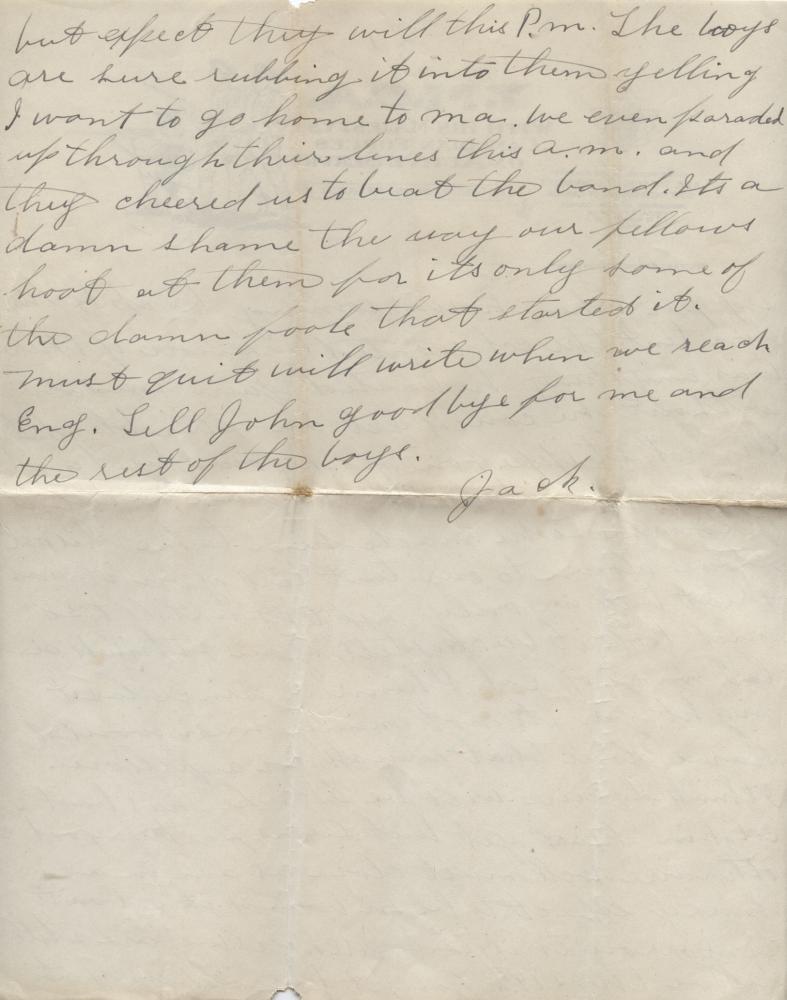 but expect they will this P.m. The boys
are sure rubbing it into them yelling
I want to go home to ma. We even paraded
up through their lines this a.m. and
they cheered us to beat the band. Its a
damn shame the way our fellows
hoot at them for its only some of
the damn fools that started it.
must quit will write when we reach
Eng. Tell John good bye for me and
the rest of the boys.
Jack.